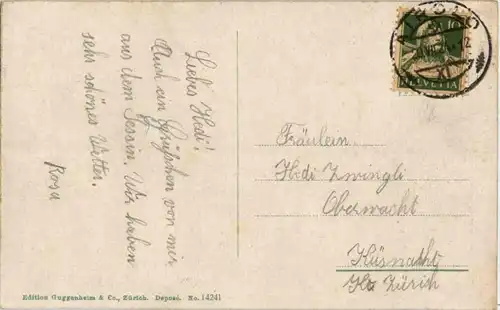 Liebes Hedi!
Auch ein Grüßchen von mir
aus dem Tessin. Wir haben
sehr schönes Wetter.
Rosa
10
HELVETIA
Fräulein
Hedi Zwingli
Oberwacht
Küsnacht
Kt. Zürich
Edition Guggenheim & Co., Zürich. Deposé. No. 14241